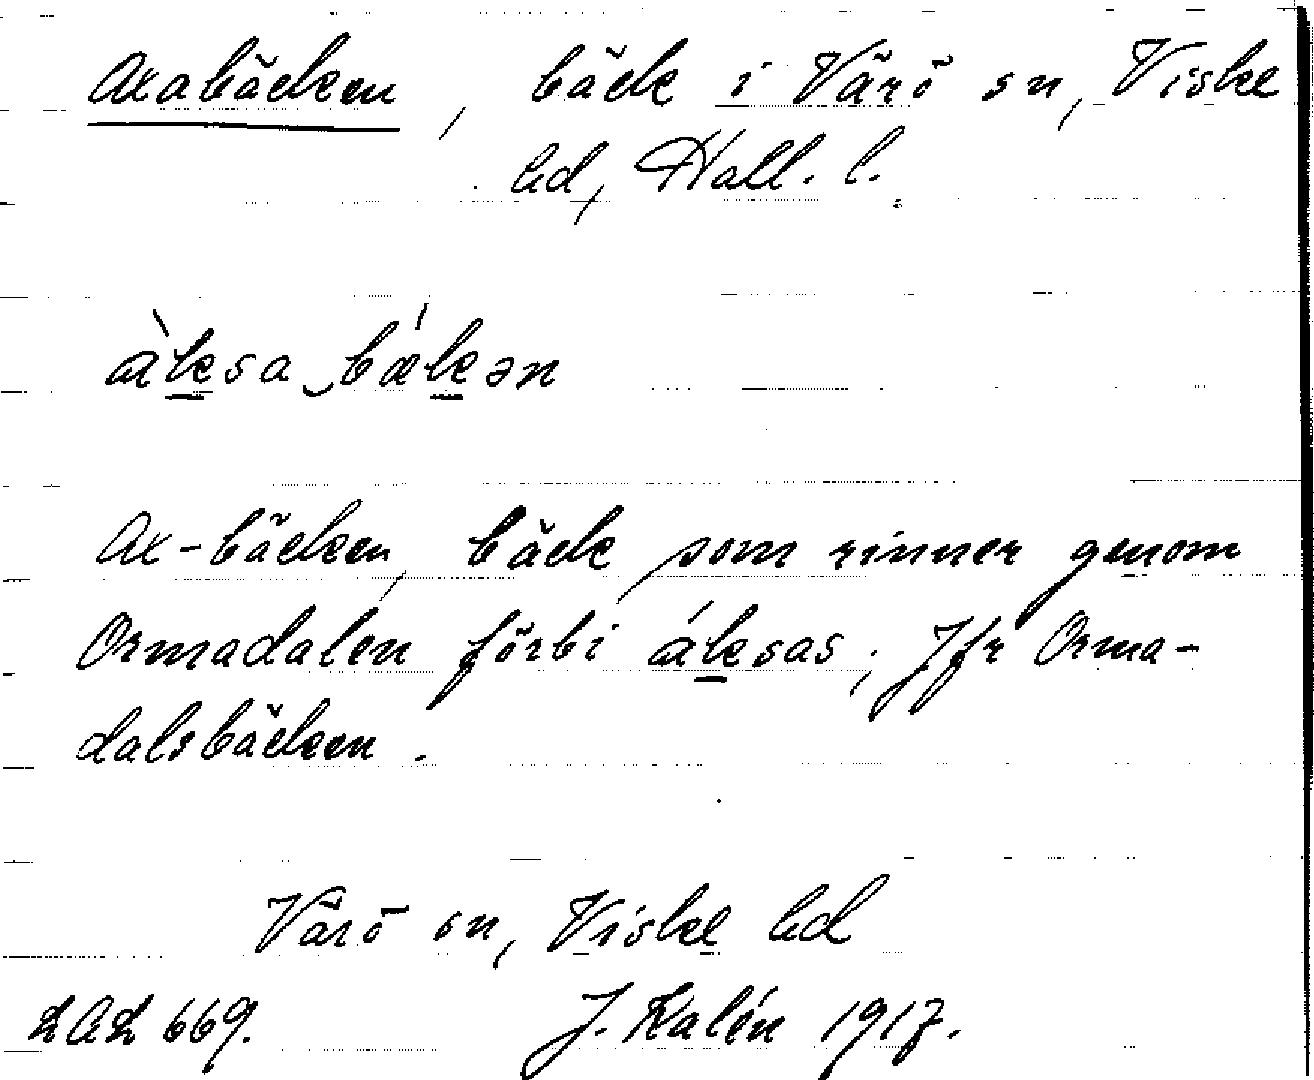 Axabäcken, bäck i Värö sn, Viske
hd, Hall. l.
àksa bækən
Ax-bäcken, bäck, som rinner genom
Ormadalen förbi áksas; Jfr Orma-
dalsbäcken.
Värö sn, Viske hd
LAL 669. J. Kalén 1917.